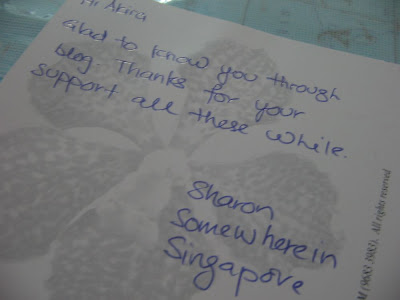 Hi Akira
Glad to know you through
blog. Thanks for your
support all these while.
Sharon
Somewherein
Singapore
M (9683 3983). All rights reserved